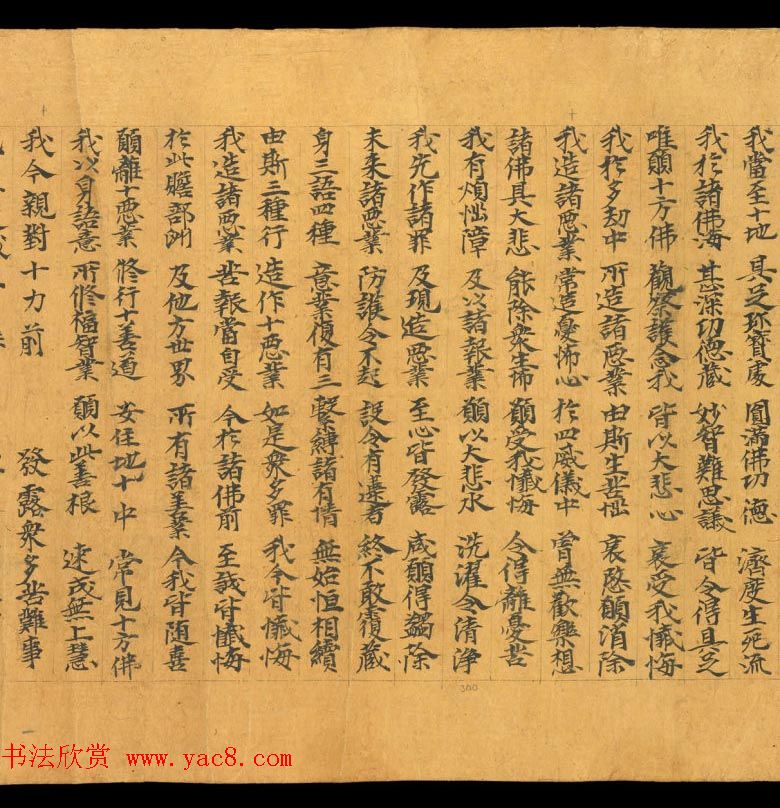 我當至十地 具足珎寶處 圓滿佛功德 濟度生死流
我於諸佛海 甚深功德藏 妙智難思議 皆令得具足
唯願十方佛 觀察護念我 皆以大悲心 哀受我懺悔
我於多劫中 所造諸惡業 由斯生苦惱 哀愍願消除
我造諸惡業 常造憂怖心 於四威儀中 曾無歡樂想
諸佛具大悲 能除衆生怖 願受我懺悔 令得離憂苦
我有煩惱障 及以諸報業 願以大悲水 洗濯令清淨
我先作諸罪 及現造惡業 至心皆發露 咸願得蠲除
未來諸惡業 防護令不起 設令有違者 終不敢覆藏
身三語四種 意業復有三 繫縛諸有情 無始恒相續
由斯三種行 造作十惡業 如是衆多罪 我今皆懺悔
我造諸惡業 苦報當自受 今於諸佛前 至誠皆懺悔
於此贍部洲 及他方世界 所有諸善業 今我皆随喜
願離十惡業 修行十善道 安住地十中 常見十方佛
我以身語意 所修福智業 願以此善根 速成無上慧
我今親對十力前 發露衆多苦難事
300
书法欣赏 www.yac8.com